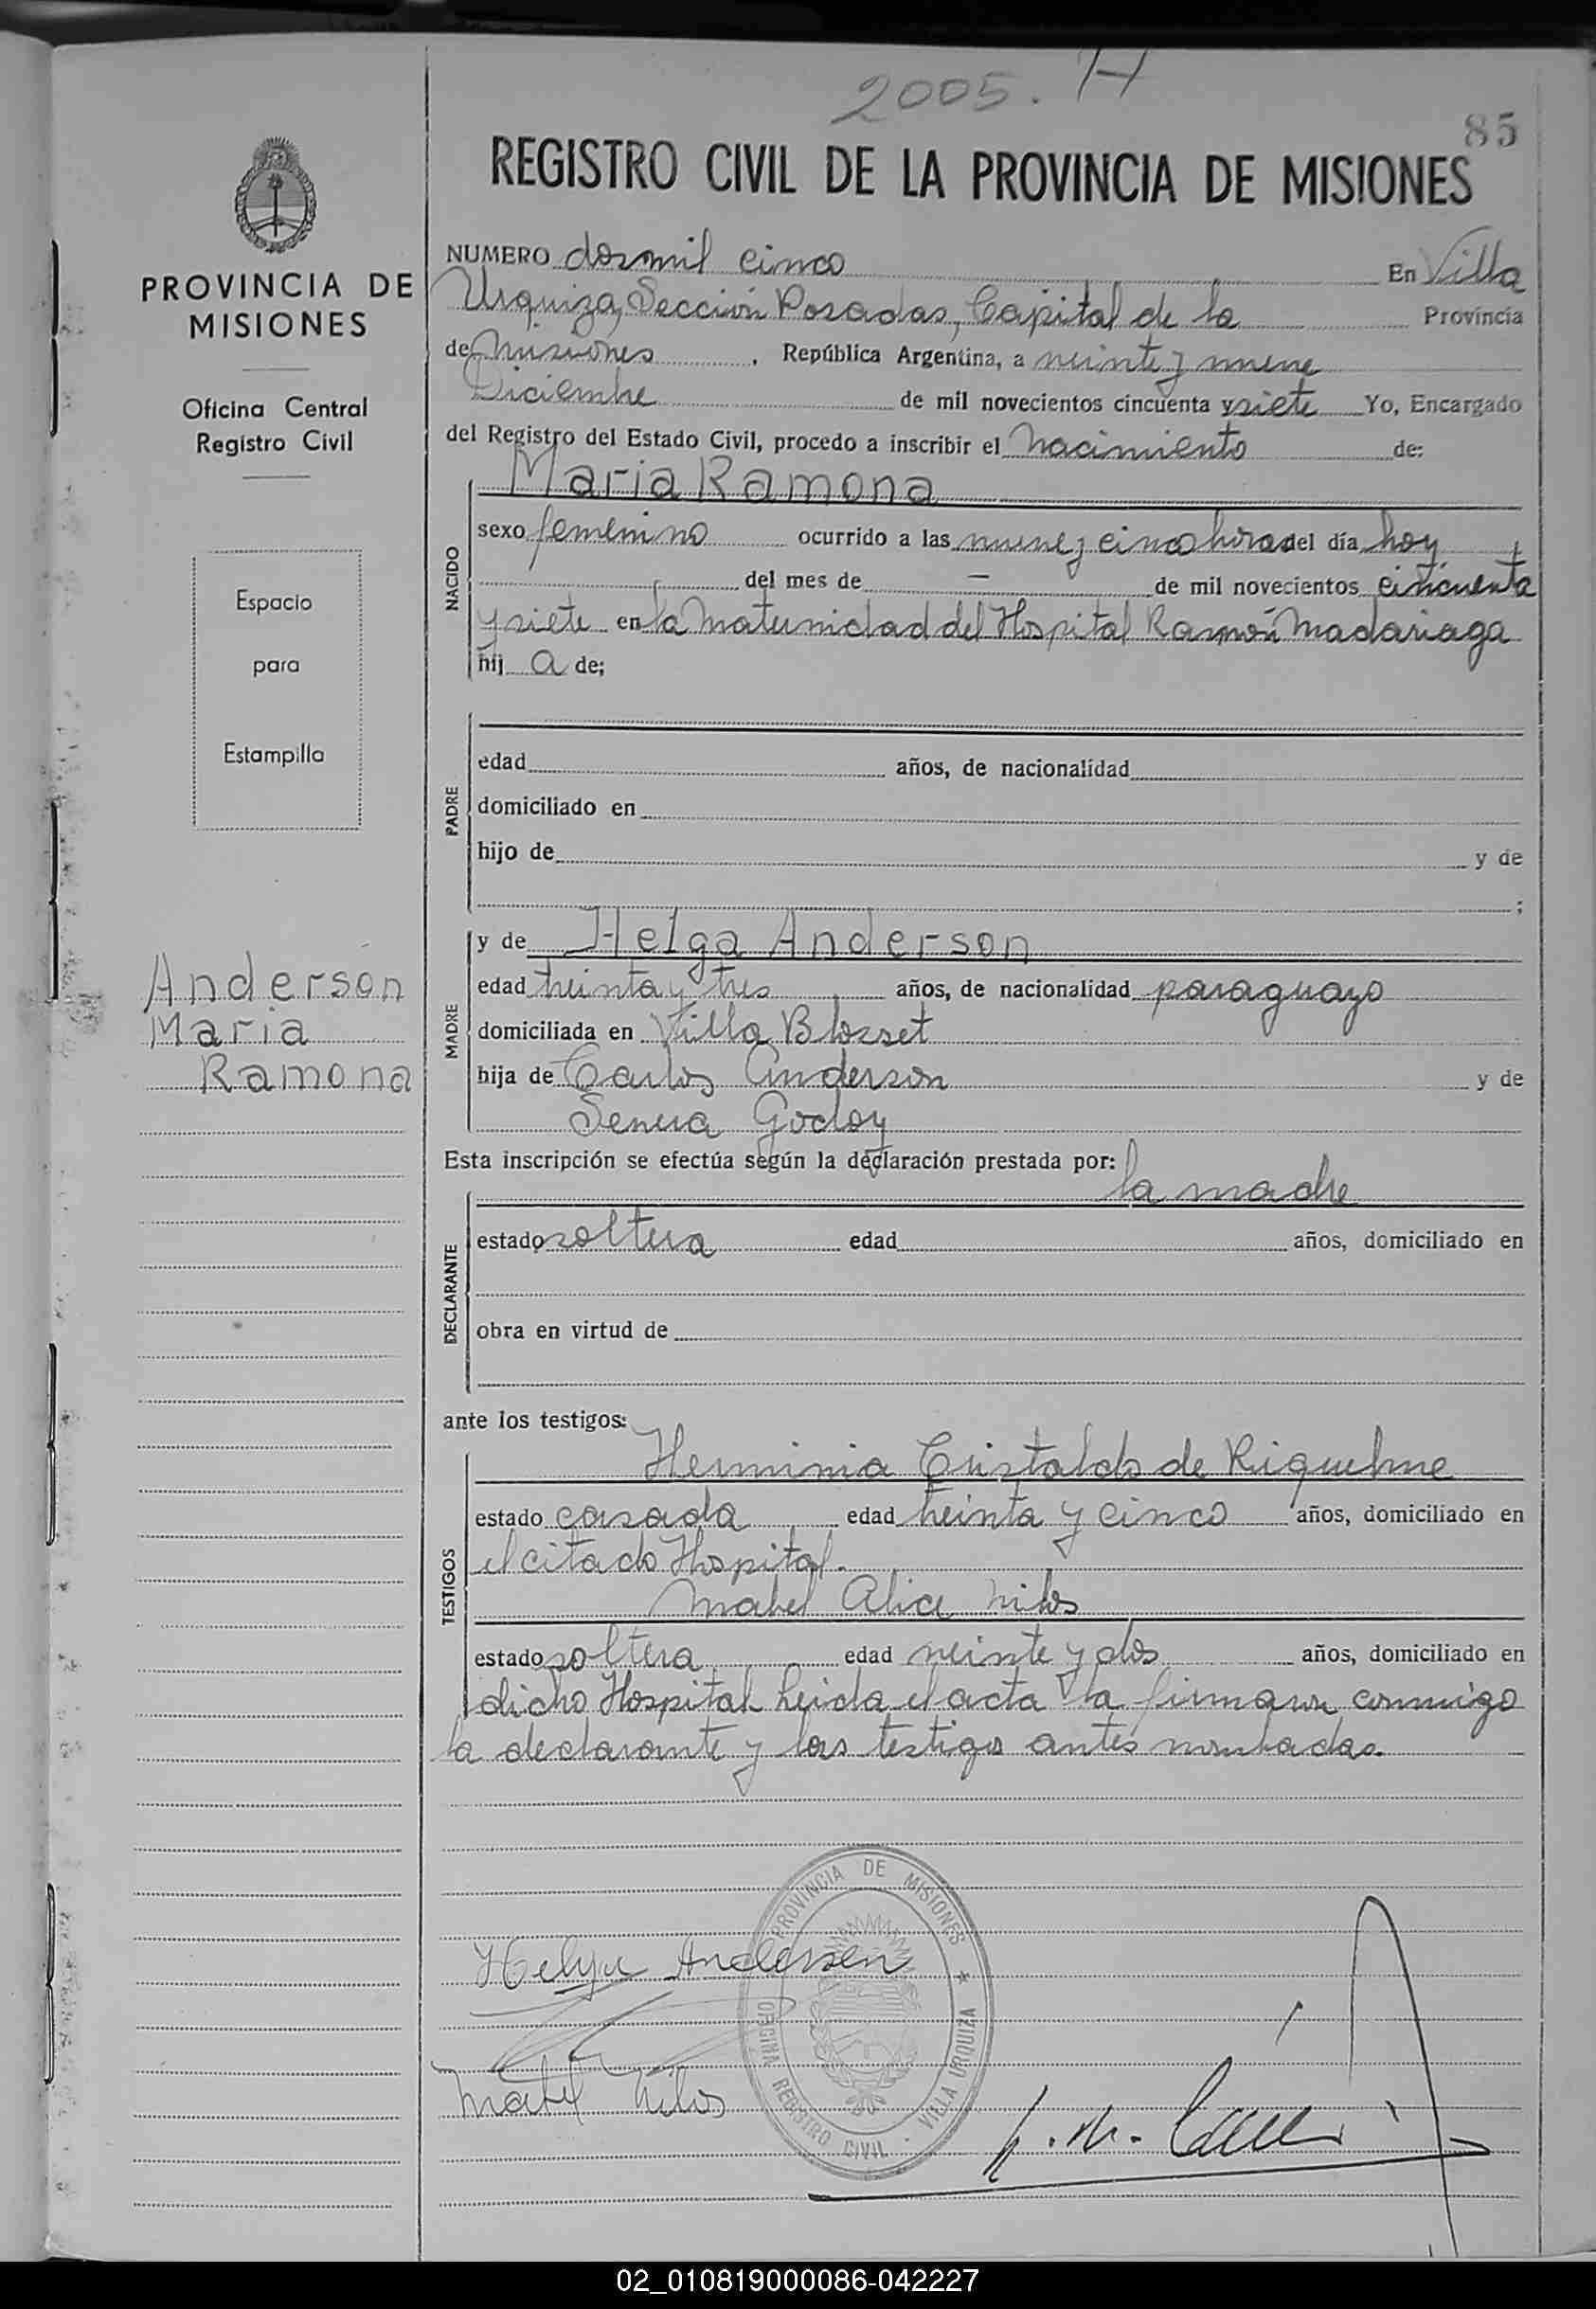 2005. H
85
REGISTRO CIVIL DE LA PROVINCIA DE MISIONES
PROVINCIA DE
MISIONES
Oficina Central
Registro Civil
Espacio
para
Estampilla
Anderson
Maria
Ramona
NUMERO dosmil cinco En Villa
Urquiza, Sección Posadas, Capital de la Provincia
de Misiones, República Argentina, a veinte y nueve
Diciembre de mil novecientos cincuenta y siete Yo, Encargado
del Registro del Estado Civil, procedo a inscribir el Nacimiento de:
NACIDO
Maria Ramona
sexo femenino ocurrido a las nueve y cinco horas del día hoy
del mes de — de mil novecientos cincuenta
y siete en la Maternidad del Hospital Ramón Madariaga
hij a de;
PADRE
edad años, de nacionalidad
domiciliado en
hijo de y de
;
MADRE
y de Helga Anderson
edad treinta y tres años, de nacionalidad paraguayo
domiciliada en Villa Blosset
hija de Carlos Anderson y de
Godoy
Esta inscripción se efectúa según la declaración prestada por:
la madre
DECLARANTE
estado soltera edad años, domiciliado en
obra en virtud de
ante los testigos:
TESTIGOS
Herminia Cristaldo de Riquelme
estado casada edad treinta y cinco años, domiciliado en
el citado Hospital.
Mabel Alice
estado soltera edad veinte y dos años, domiciliado en
dicho Hospital. Leida el acta la firmaron conmigo
la declarante y los testigos antes nombradas.
Helga Anderssen
Mabel
PROVINCIA DE MISIONES ★ OFICINA REGISTRO CIVIL - VILLA URQUIZA
02_010819000086-042227